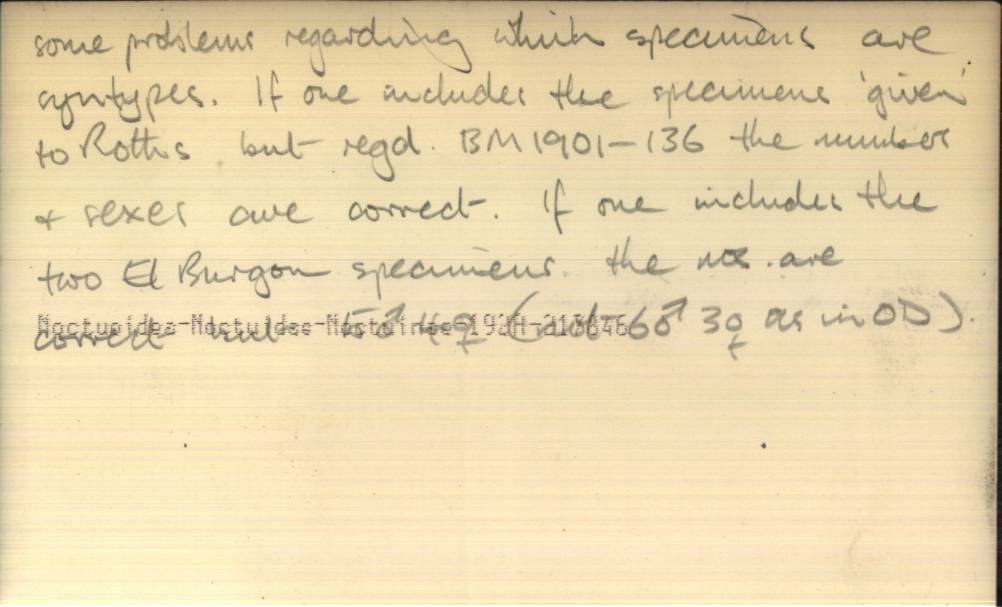 some problems regarding which specimens are
syntypes. If one includes the specimens 'given'
to Roths but regd. BM 1901-136 the number
& sexes are correct. If one includes the
two El Burgon specimens. the nos. are
correct but 5♂ 4♀ (not 6♂ 3♀ as in OD).
Noctuoidea-Noctuidae-Noctuinae